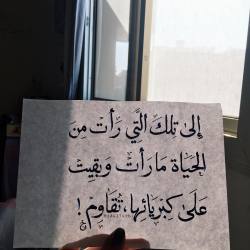 إِلىٰ تِلكَ الَّتِي رَأَت مِنَ
الحَيَاة مَا رَأتْ وَبَقِيتْ
عَلَىٰ كِبرِيَائِها، تُقَاوِمْ !